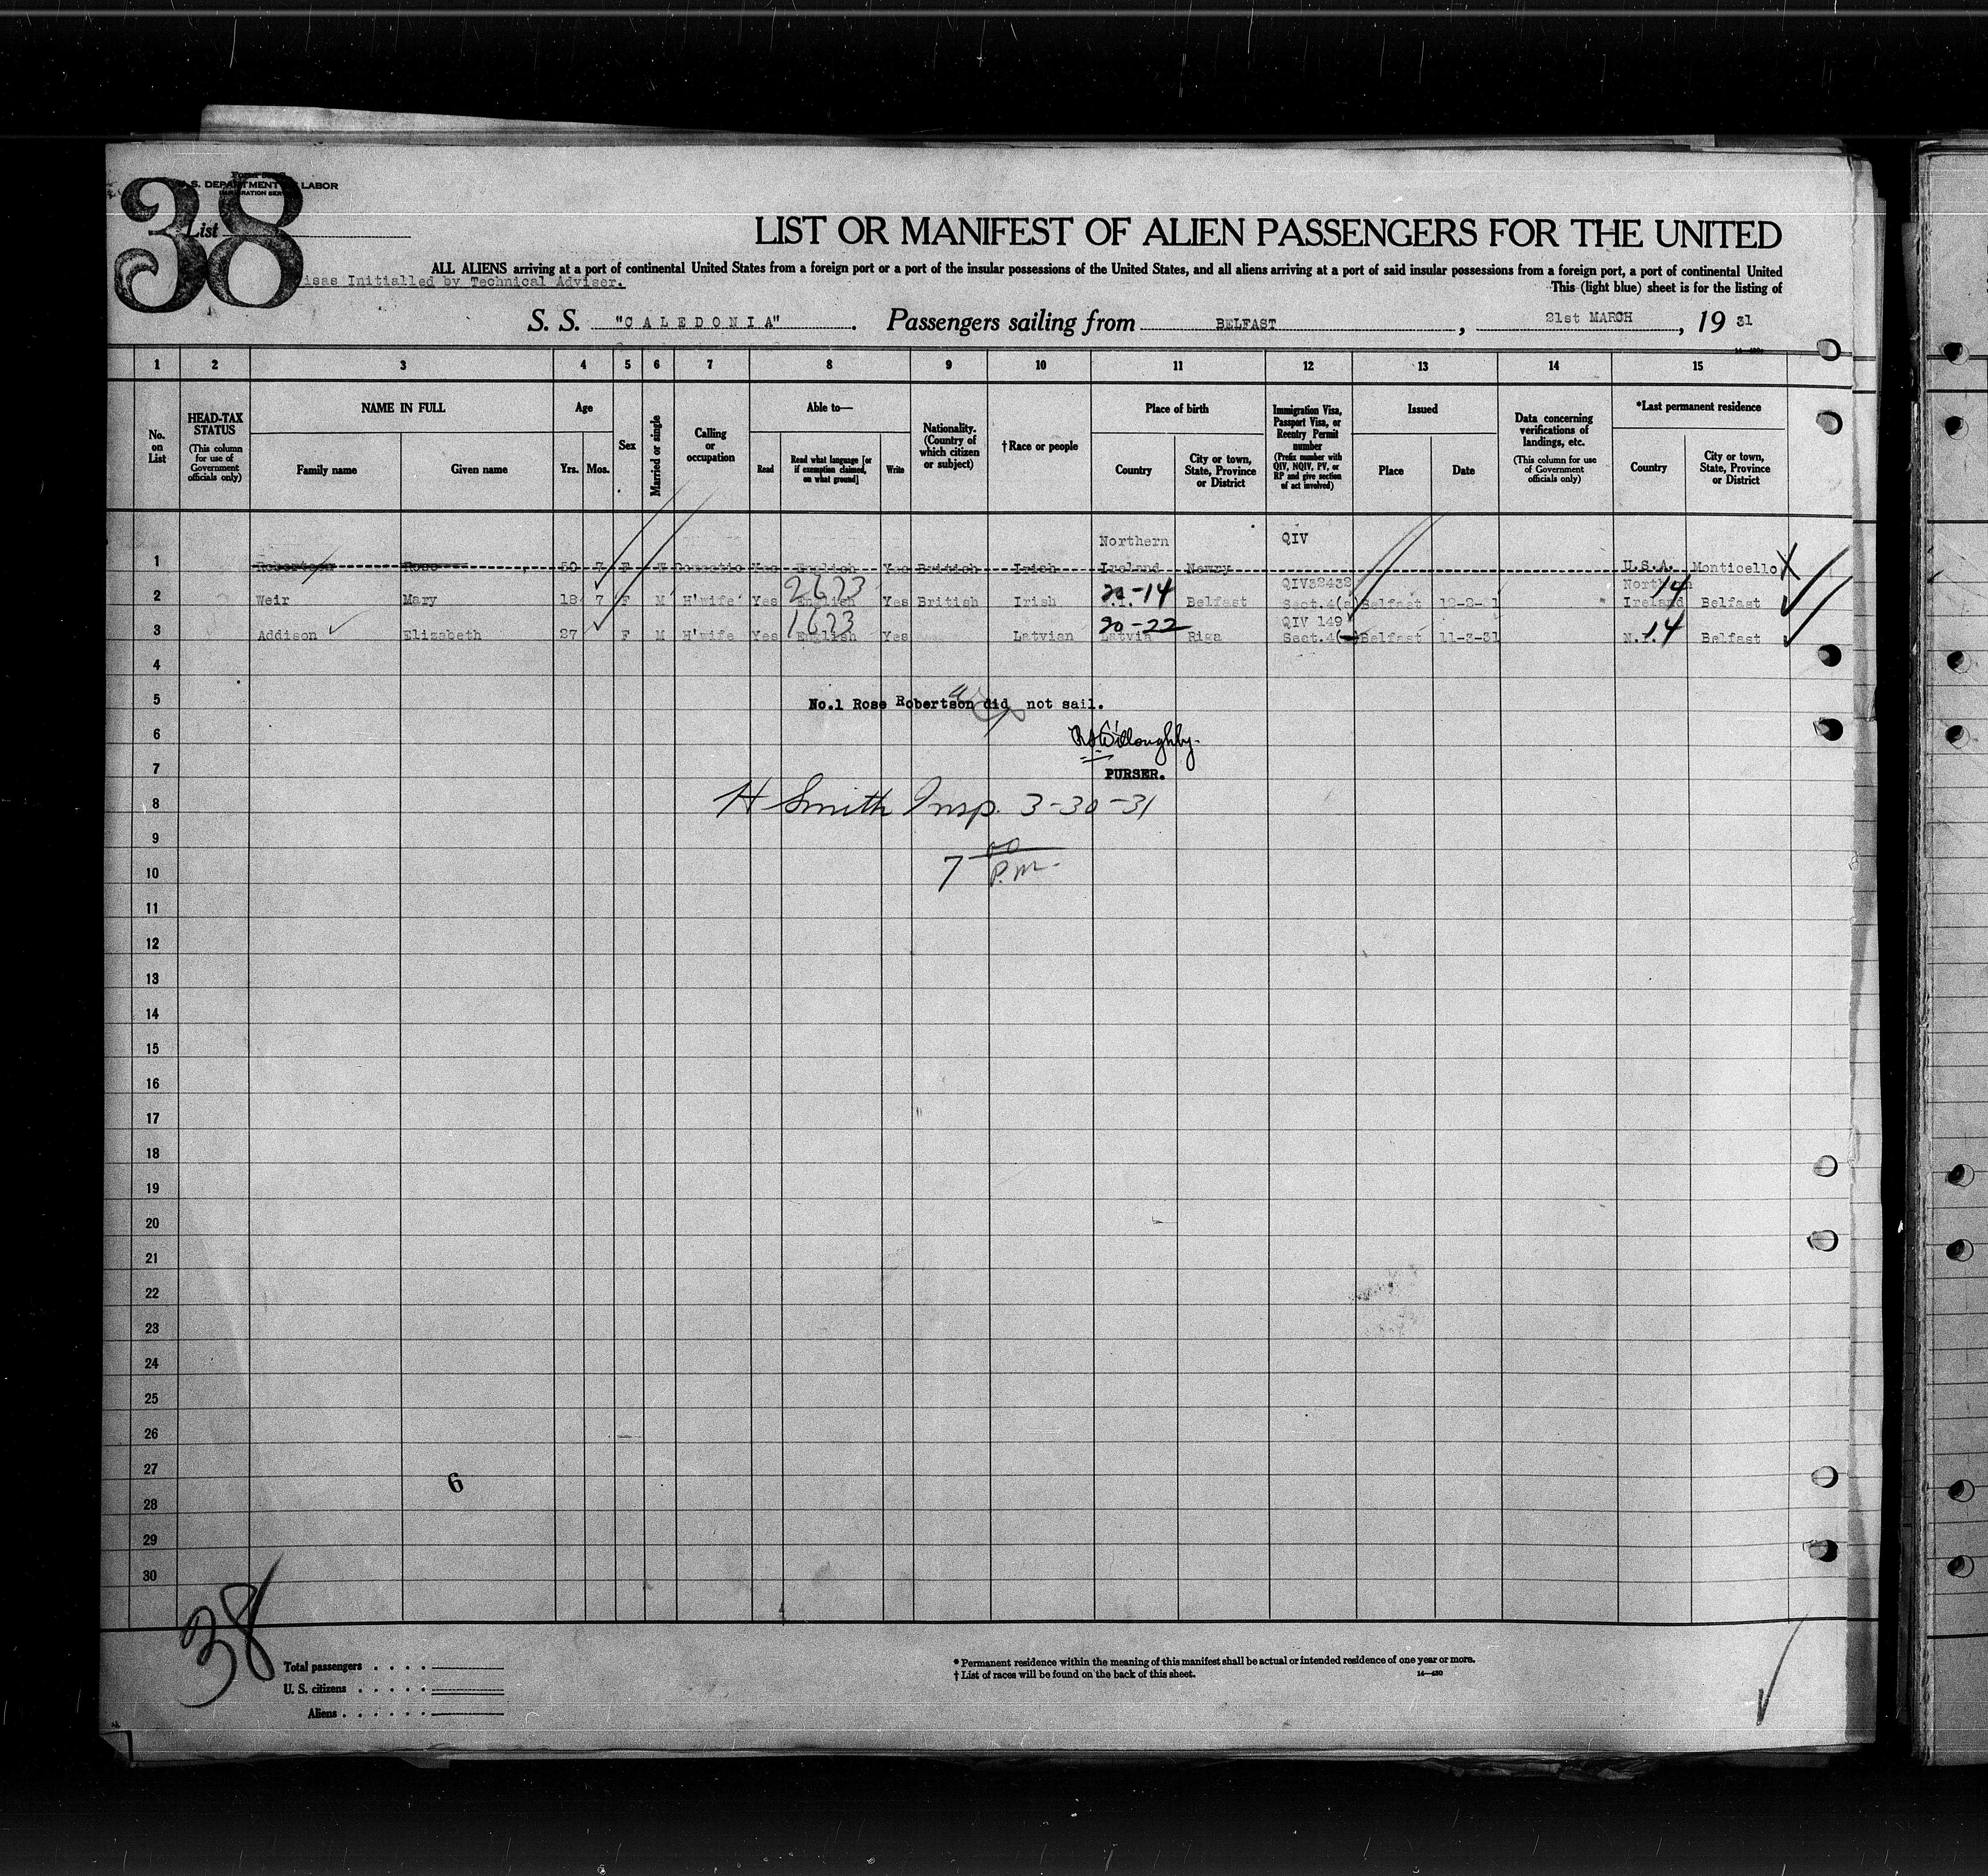 38
U.S. DEPARTMENT OF LABOR
IMMIGRATION SERVICE
List
LIST OR MANIFEST OF ALIEN PASSENGERS FOR THE UNITED
ALL ALIENS arriving at a port of continental United States from a foreign port or a port of the insular possessions of the United States, and all aliens arriving at a port of said insular possessions from a foreign port, a port of continental United
isas Initialled by Technical Adviser.
This (light blue) sheet is for the listing of
S. S. "CALEDONIA". Passengers sailing from BELFAST, 21st MARCH, 19 31
1 2 3 4 5 6 7 8 9 10 11 12 13 14 15
No. on List
HEAD-TAX STATUS (This column for use of Government officials only)
NAME IN FULL
Family name Given name
Age
Yrs. Mos.
Sex
Married or single
Calling or occupation
Able to—
Read
Read what language [or if exemption claimed, on what ground]
Write
Nationality. (Country of which citizen or subject)
† Race or people
Place of birth
Country
City or town, State, Province or District
Immigration Visa, Passport Visa, or Reentry Permit number (Prefix number with QIV, NQIV, PV, or RP and give section of act involved)
Issued
Place Date
Data concerning verifications of landings, etc. (This column for use of Government officials only)
*Last permanent residence
Country
City or town, State, Province or District
Northern QIV
1 Robertson Rose 50 7 F W Domestic Yes English Yes British Irish Ireland Newry U.S.A. Monticello X
2673 20-14 QIV32432 Northern 14
2 Weir Mary 18 7 F M H'wife Yes English Yes British Irish Belfast Sect.4( Belfast 12-2-31 Ireland Belfast
1673 20-22 QIV 149 14
3 Addison Elizabeth 27 F M H'wife Yes English Yes Latvian Latvia Riga Sect.4( Belfast 11-3-31 N.I. Belfast
4
5 No.1 Rose Robertson did not sail.
6 Willoughby.
7 PURSER.
8 H Smith Insp. 3-30-31
9
10 7 00 P.m.
11
12
13
14
15
16
17
18
19
20
21
22
23
24
25
26
27
6
28
29
30
38
Total passengers . . . .
U. S. citizens . . . . .
Aliens . . . . . .
* Permanent residence within the meaning of this manifest shall be actual or intended residence of one year or more.
† List of races will be found on the back of this sheet. 14—430